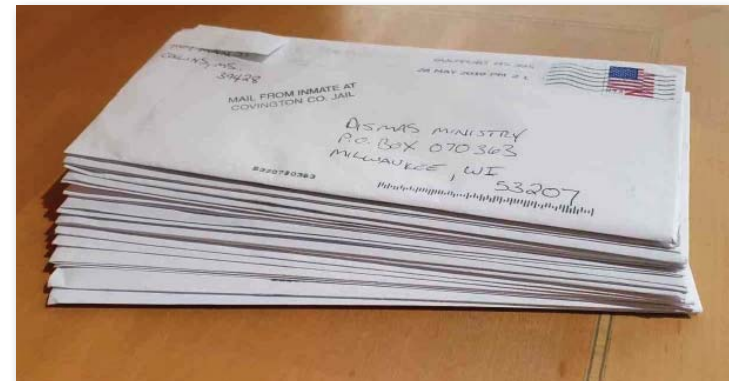 COLLINS, MS.
39428
28 MAY 2019 PM 2 L
MAIL FROM INMATE AT
COVINGTON CO. JAIL
DISMAS MINISTRY
P.O. BOX 070363
MILWAUKEE, WI
53207
5320780363